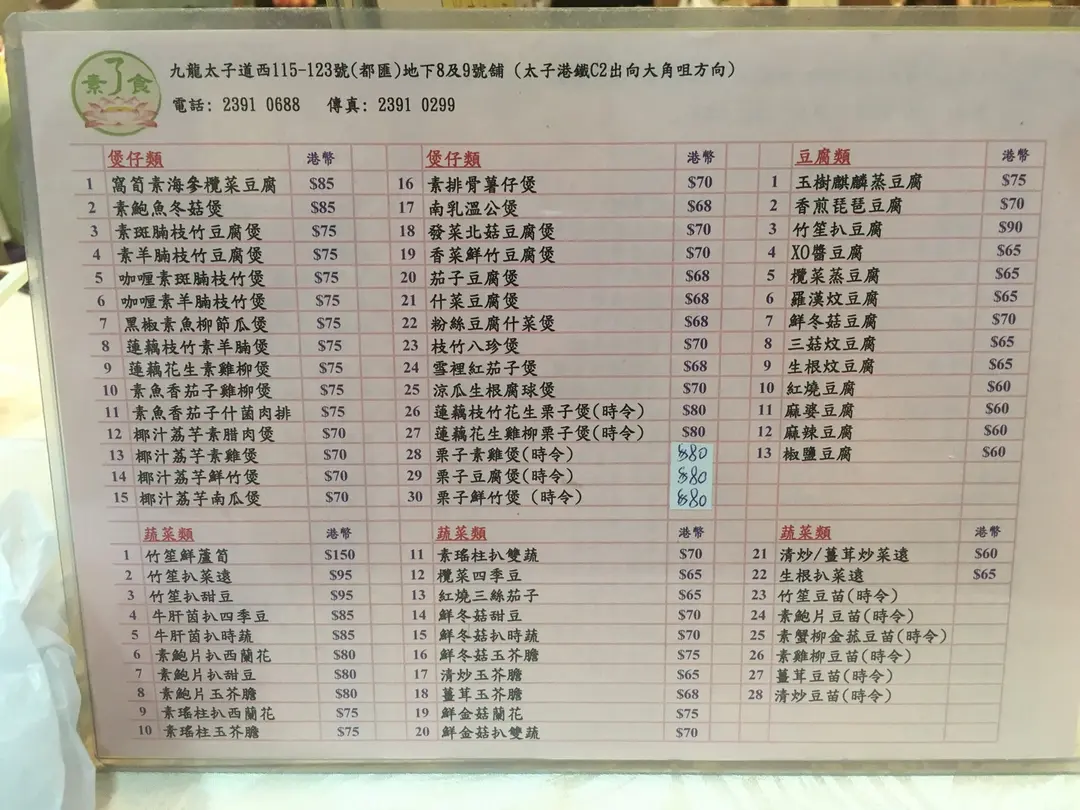 素了食
九龍太子道西115-123號(都匯)地下8及9號舖 (太子港鐵C2出向大角咀方向)
電話: 2391 0688 傳真: 2391 0299
煲仔類 港幣
1 窩筍素海參欖菜豆腐 $85
2 素鮑魚冬菇煲 $85
3 素斑腩枝竹豆腐煲 $75
4 素羊腩枝竹豆腐煲 $75
5 咖喱素斑腩枝竹煲 $75
6 咖喱素羊腩枝竹煲 $75
7 黑椒素魚柳節瓜煲 $75
8 蓮藕枝竹素羊腩煲 $75
9 蓮藕花生素雞柳煲 $75
10 素魚香茄子雞柳煲 $75
11 素魚香茄子什菌肉排 $75
12 椰汁荔芋素腊肉煲 $70
13 椰汁荔芋素雞煲 $70
14 椰汁荔芋鮮竹煲 $70
15 椰汁荔芋南瓜煲 $70
煲仔類 港幣
16 素排骨薯仔煲 $70
17 南乳溫公煲 $68
18 發菜北菇豆腐煲 $70
19 香菜鮮竹豆腐煲 $70
20 茄子豆腐煲 $68
21 什菜豆腐煲 $68
22 粉絲豆腐什菜煲 $68
23 枝竹八珍煲 $70
24 雪裡紅茄子煲 $68
25 涼瓜生根腐球煲 $70
26 蓮藕枝竹花生栗子煲(時令) $80
27 蓮藕花生雞柳栗子煲(時令) $80
28 栗子素雞煲(時令) $80
29 栗子豆腐煲(時令) $80
30 栗子鮮竹煲 (時令) $80
豆腐類 港幣
1 玉樹麒麟蒸豆腐 $75
2 香煎琵琶豆腐 $70
3 竹笙扒豆腐 $90
4 XO醬豆腐 $65
5 欖菜蒸豆腐 $65
6 羅漢炆豆腐 $65
7 鮮冬菇豆腐 $70
8 三菇炆豆腐 $65
9 生根炆豆腐 $65
10 紅燒豆腐 $60
11 麻婆豆腐 $60
12 麻辣豆腐 $60
13 椒鹽豆腐 $60
蔬菜類 港幣
1 竹笙鮮蘆筍 $150
2 竹笙扒菜遠 $95
3 竹笙扒甜豆 $95
4 牛肝茵扒四季豆 $85
5 牛肝茵扒時蔬 $85
6 素鮑片扒西蘭花 $80
7 素鮑片扒甜豆 $80
8 素鮑片玉芥膽 $80
9 素瑤柱扒西蘭花 $75
10 素瑤柱玉芥膽 $75
蔬菜類 港幣
11 素瑤柱扒雙蔬 $70
12 欖菜四季豆 $65
13 紅燒三絲茄子 $65
14 鮮冬菇甜豆 $70
15 鮮冬菇扒時蔬 $70
16 鮮冬菇玉芥膽 $75
17 清炒玉芥膽 $65
18 薑茸玉芥膽 $68
19 鮮金菇蘭花 $75
20 鮮金菇扒雙蔬 $70
蔬菜類 港幣
21 清炒/薑茸炒菜遠 $60
22 生根扒菜遠 $65
23 竹笙豆苗(時令)
24 素鮑片豆苗(時令)
25 素蟹柳金菇豆苗(時令)
26 素雞柳豆苗(時令)
27 薑茸豆苗(時令)
28 清炒豆苗(時令)